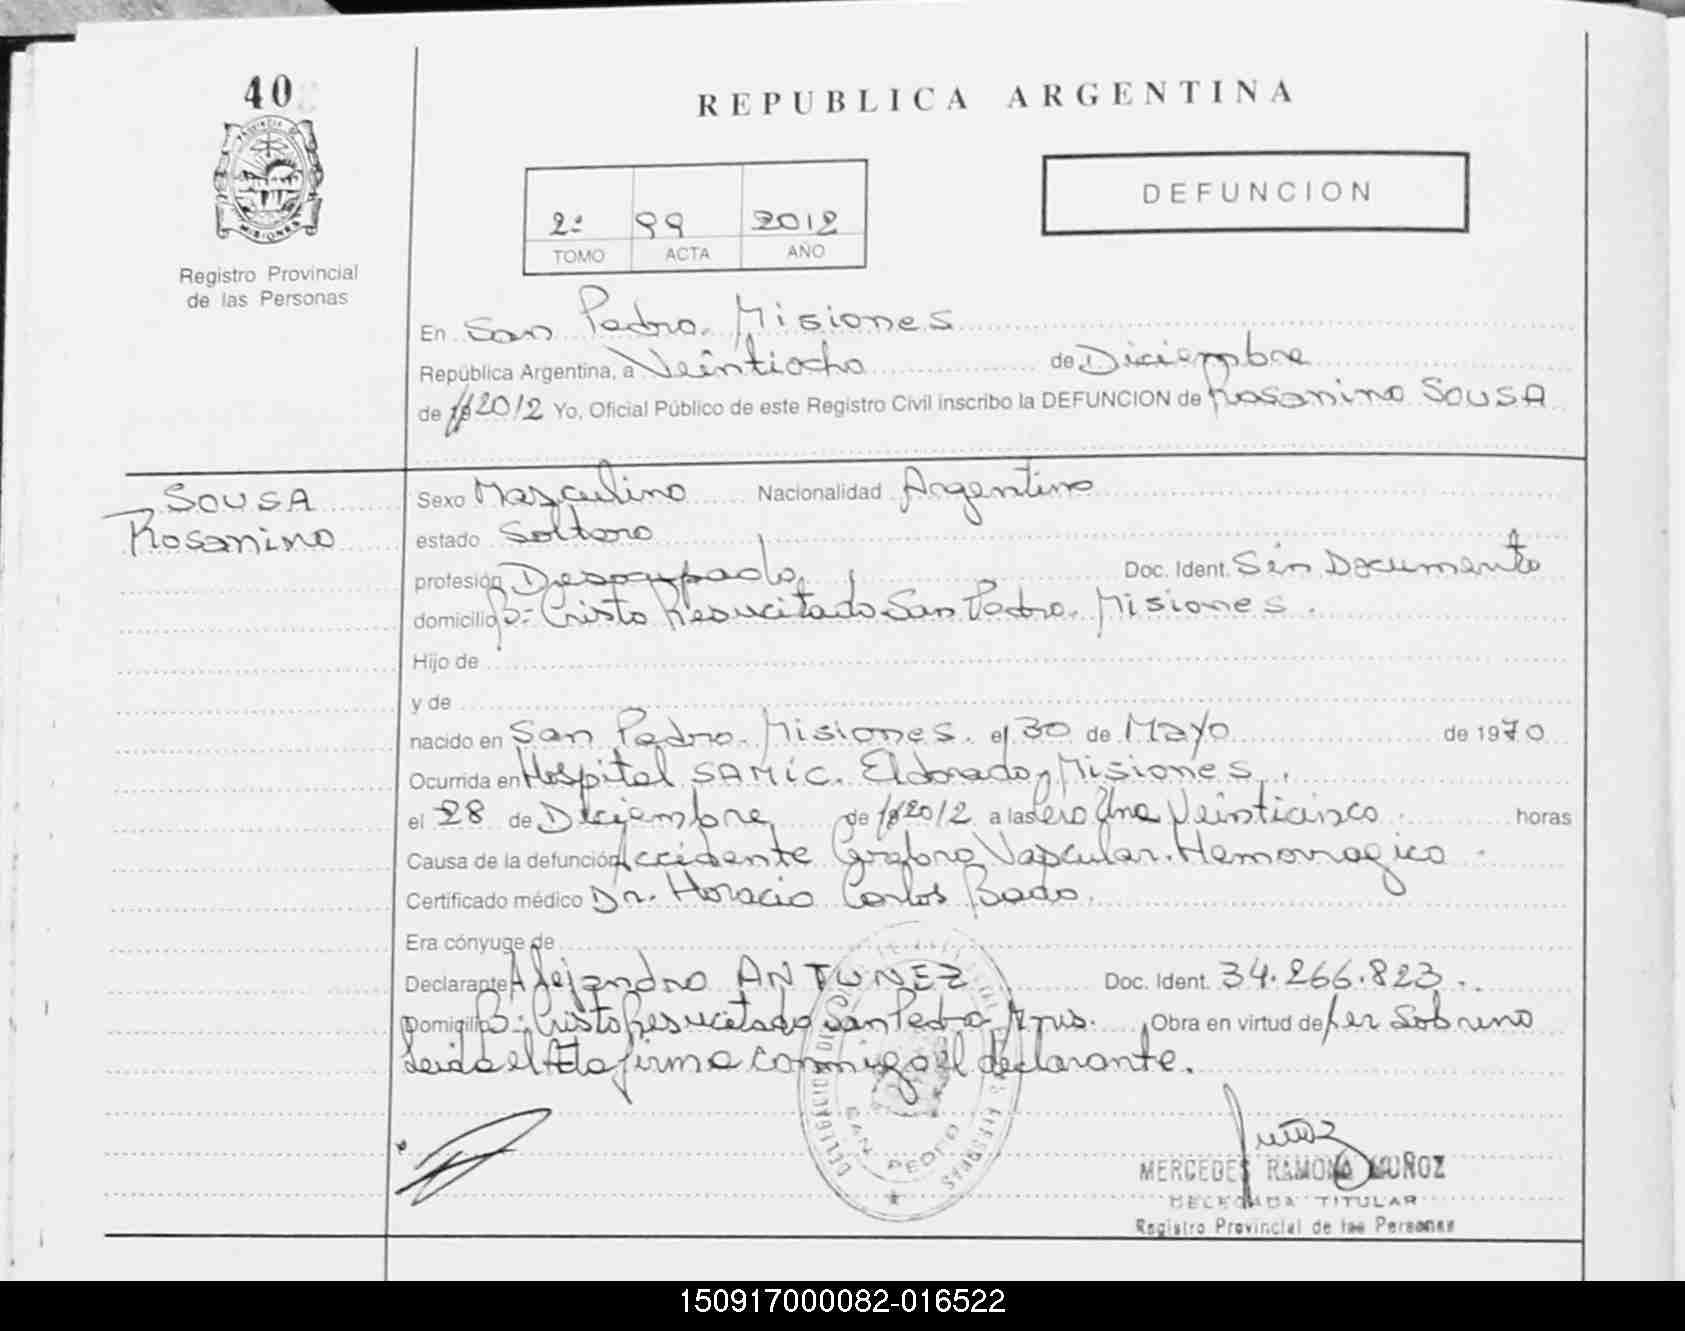 40
REPUBLICA ARGENTINA
PROVINCIA DE
MISIONES
Registro Provincial
de las Personas
DEFUNCION
2º 99 2012
TOMO ACTA AÑO
En San Pedro. Misiones
República Argentina, a Veintiocho de Diciembre
de 2012 Yo, Oficial Público de este Registro Civil inscribo la DEFUNCION de Rosanino SOUSA
SOUSA
Rosanino
Sexo Masculino Nacionalidad Argentino
estado Soltero
profesión Desocupado Doc. Ident. Sin Documento
domicilio Bº Cristo Resucitado San Pedro. Misiones.
Hijo de
y de
nacido en San Pedro. Misiones. el 30 de Mayo de 1970
Ocurrida en Hospital SAMIC. Eldorado, Misiones.
el 28 de Diciembre de 2012 a las Cero Una Veinticinco horas
Causa de la defunción Accidente Cerebro Vascular. Hemorragico.
Certificado médico Dr. Horacio Carlos Bado.
Era cónyuge de
Declarante Alejandro ANTUNEZ Doc. Ident. 34.266.823.
Domicilio Bº Cristo Resucitado San Pedro Mnes. Obra en virtud de ser Sobrino
Leida el Acta firma conmigo el declarante.
SAN PEDRO
MERCEDES RAMONA MUÑOZ
DELEGADA TITULAR
Registro Provincial de las Personas
150917000082-016522